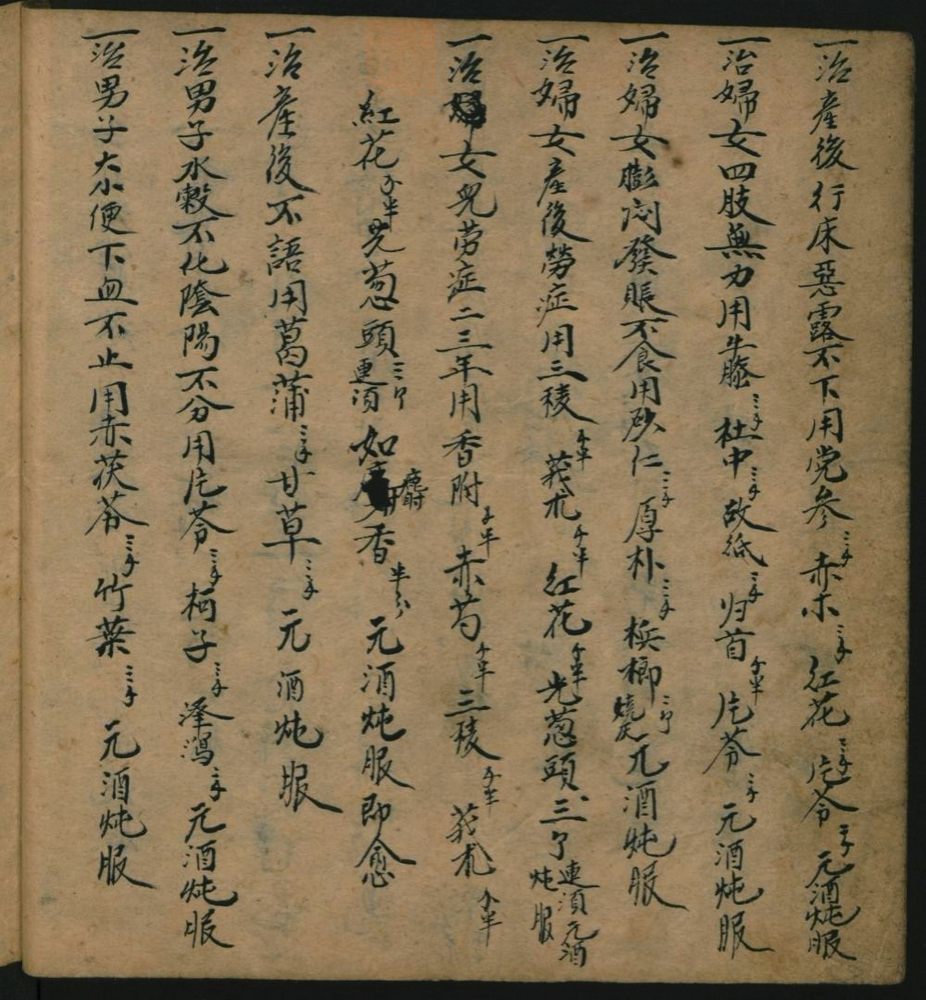 一治產後行床惡露不下用党參三刄赤木三刄紅花三刄片苓二刄元酒炖服
一治婦女四肢無力用牛膝三刄杜中三刄故紙三刄归首刄半片苓三刄元酒炖服
一治婦女膨闷發賬不食用砂仁二刄厚朴二刄檳榔二个燒灰兀酒炖服
一治婦女產後勞症用三稜刄半莪朮刄半紅花刄半光葱頭三个連須元酒炖服
一治婦女兒劳症二三年用香附刄半赤芍刄半三稜刄半莪朮刄半
紅花刄半光葱頭連須三个如麝香半分元酒炖服即愈
一治產後不語用葛蒲三刄甘草三刄元酒炖服
一治男子水穀不化陰陽不分用片苓三刄柯子三刄澤瀉三刄元酒炖服
一治男子大小便下血不止用赤茯苓三刄竹葉三刄元酒炖服